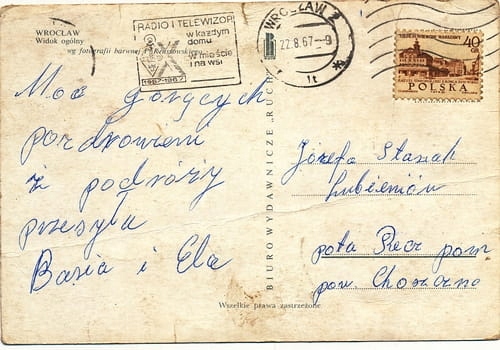 WROCŁAW
Widok ogólny
wg fotografii barwnej
RADIO I TELEWIZOR
w każdym
domu
w mieście
i na wsi
1957-1967
WROCŁAW 2
22.8.67-9
1t
40
POLSKA
BIURO WYDAWNICZE „RUCH"
Moc gorących
pozdrowień
z podróży
przesyła
Basia i Ela
Józefa Stasiak
Lubieniów
pota Recz pom
pow. Choszczno
Wszelkie prawa zastrzeżone